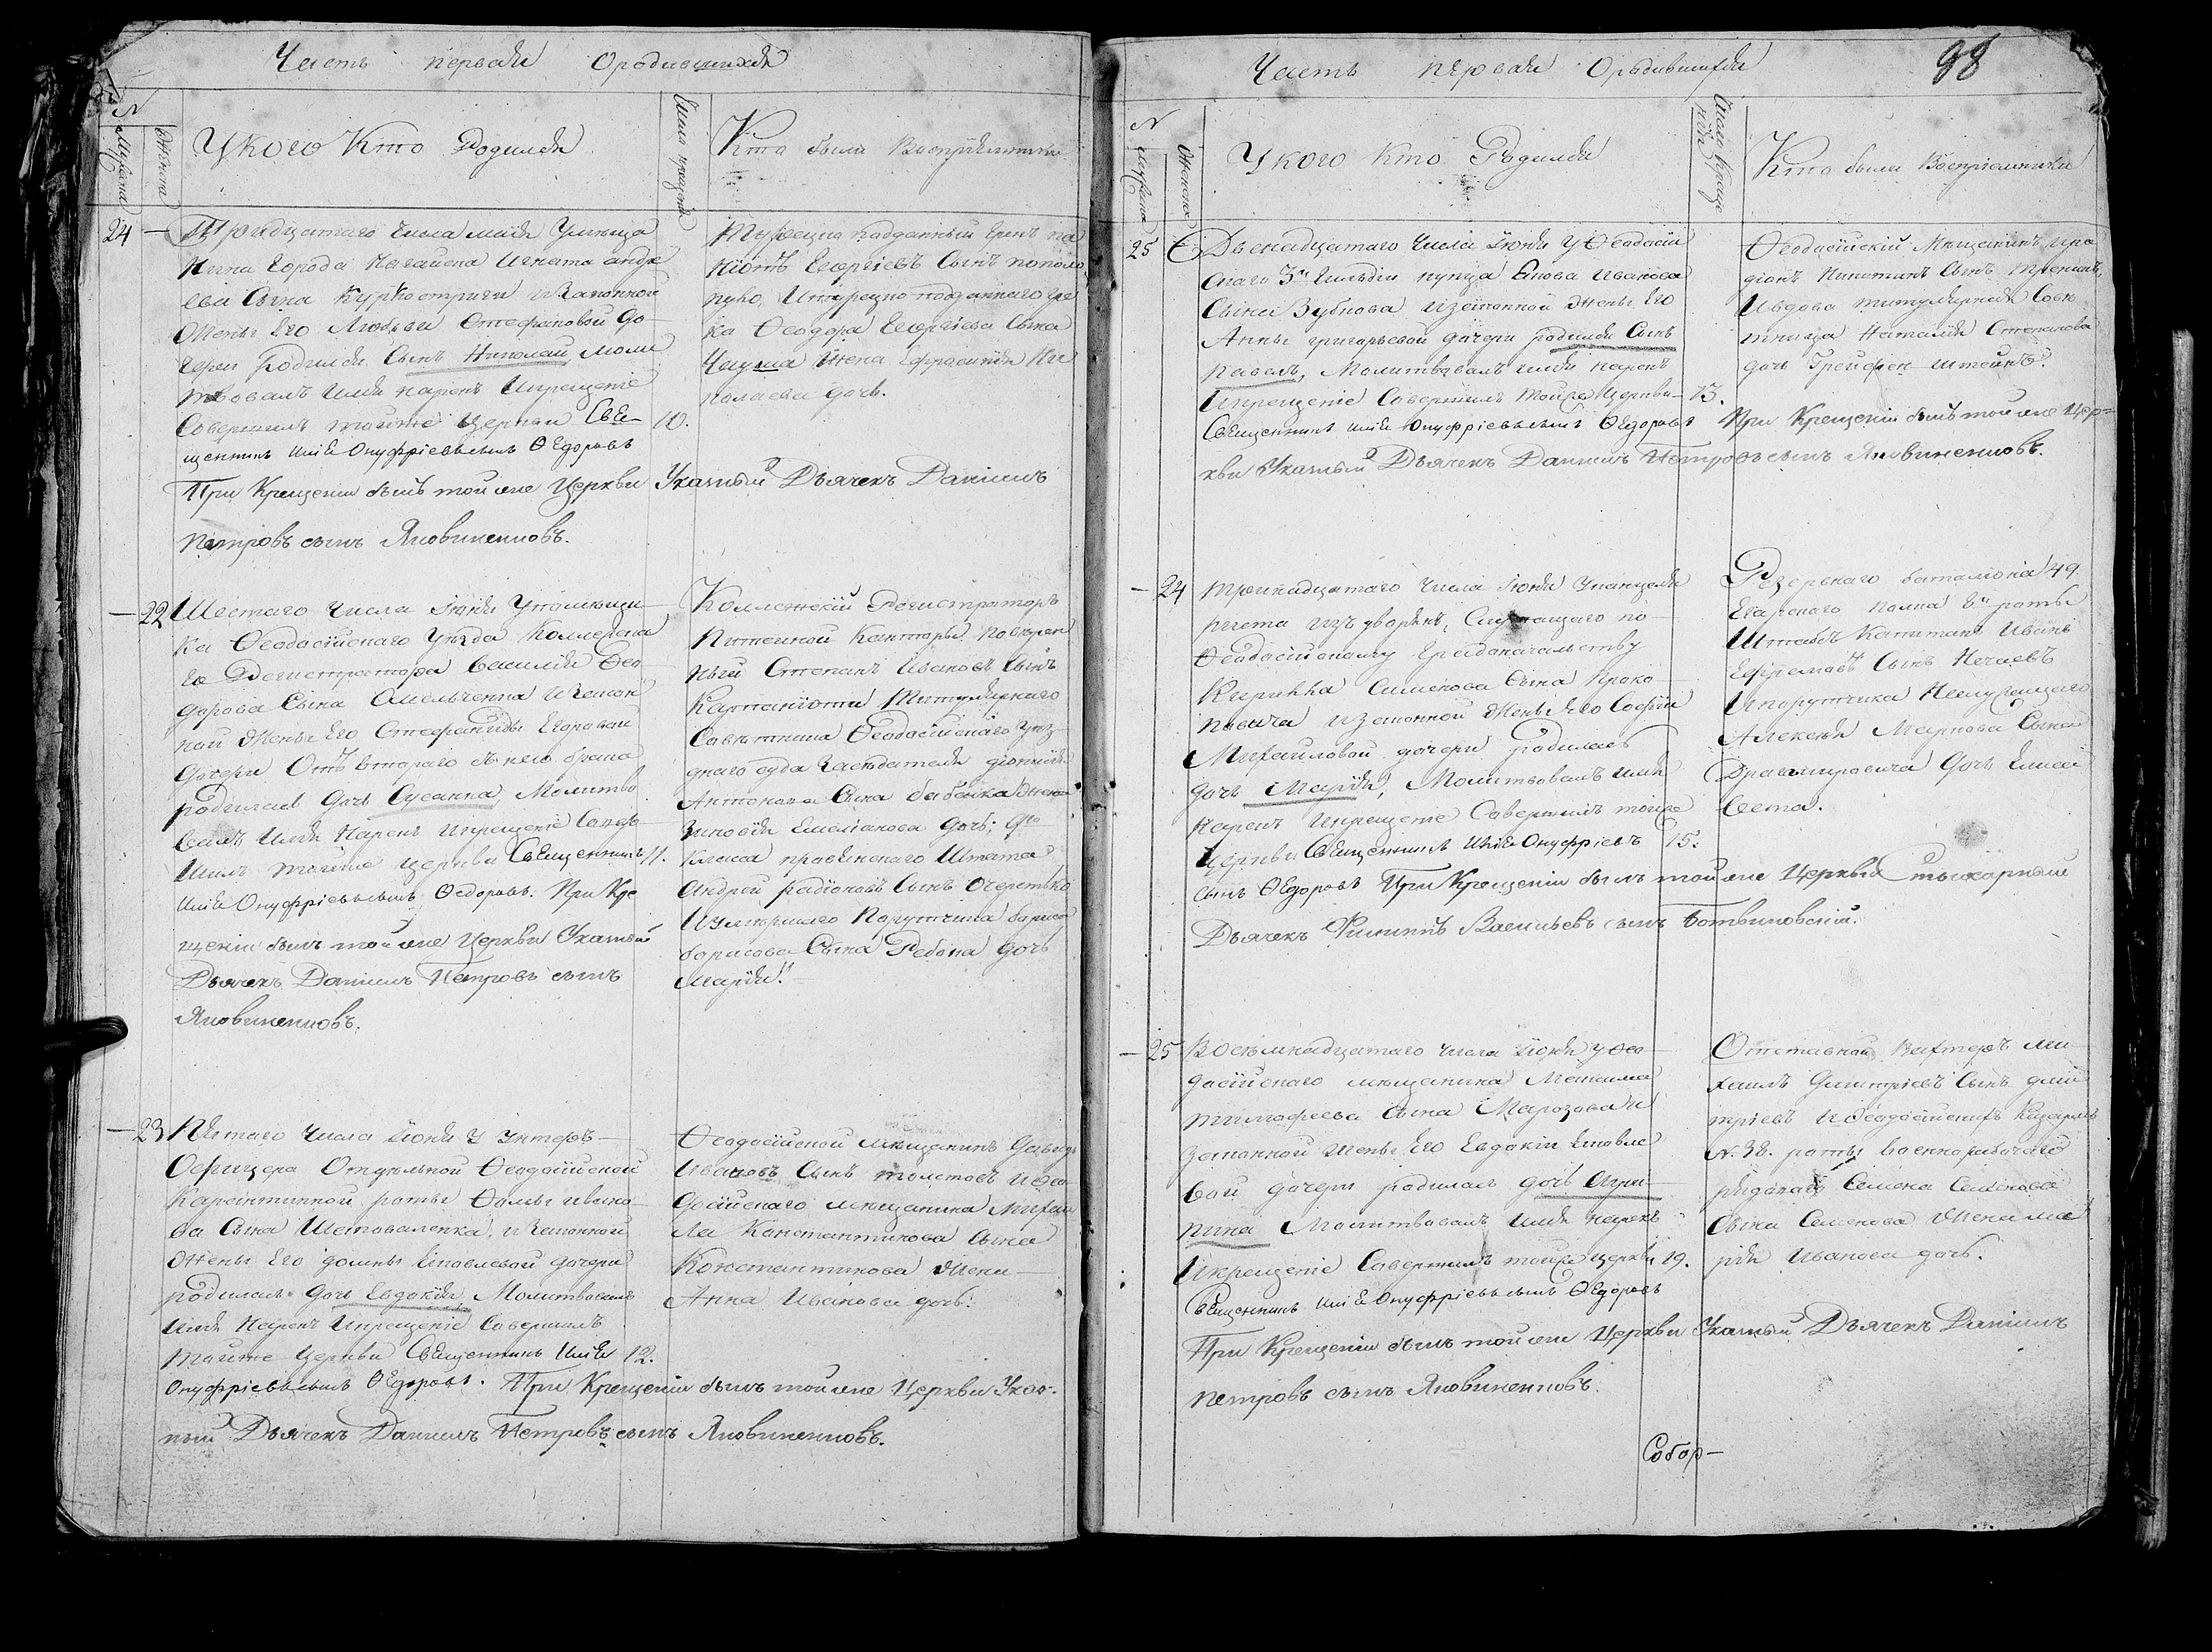 Часть первая Ородившихся
N
Мужеска
Женска
Укого Кто Родился
Кто были Восприемники
24 —
Тридцатаго числа маия Умѣща
нина Города Нагайска Игната андре
ева Сына и Законной
Жены Его Любови Стефановой до
чери Родился Сынъ Николай, моли
твовалъ имя нарекъ Икрещеніе
Совершилъ тойже церкви Свя- 10.
щенникъ Илія Онуфріевъ сынъ Ѳедоровъ
При Крещеніи былъ той же Церкви Указный Дьячекъ Даніилъ
Петровъ сынъ Яновиненковъ.
Турецко подданный Грекъ па
наіотъ Георгіевъ Сынъ
Итурецко подданнаго гре
ка Ѳеодора Георгіева Сына
Жена Ефросинія Ни
колаева дочь.
— 22
Шестаго числа Іюня Упомѣщи
ка Ѳеодосійскаго Уѣзда Коллежска
го Регистратора Василия Ѳео
дорова Сына Омельченка Изакон
ной Жены Его Стефаниды Егоровой
дочери Отъ втораго съ нею брака
родилась дочь Сусанна, Молитво
валъ имя Нарекъ Икрещеніе Совер
шилъ тойже церкви Священникъ 11.
Илія Онуфріевъ сынъ Ѳедоровъ. При Кре
щеніи былъ той же Церкви Указный
Дьячекъ Даніилъ Петровъ сынъ
Яновиненковъ.
Коллежскій Регистраторъ
Питейной Канторы повѣрен
ный Степанъ Ивановъ Сынъ
Титулярнаго
Совѣтника Ѳеодосійскаго уѣз
днаго суда Засѣдателя діонисія
Антонова Сына Жена
Зиновія Емеліанова дочь; 9го
класса Штата
андрей радіоновъ Сынъ Очеретько
Иумершаго Порутчика бориса
борисова Сына Дочь
Марія.
— 23
Пятаго числа Іюня У Унтеръ-
Офицера Отдѣльной Ѳеодосійской
Карантинной роты Ѳомы ивано
ва Сына Шаповаленка, Изаконной
Жены Его домны Іаковлевой дочери
родилась дочь Евдокия Молитвовалъ
имя Нарекъ Икрещеніе Совершилъ
тойже Церкви Священникъ Илія 12.
Онуфріевъ сынъ Ѳедоровъ. При Крещеніи былъ той же Церкви Указ-
ный Дьячекъ Даніилъ Петровъ сынъ Яновиненковъ.
Ѳеодосійской мѣщанинъ Давидъ
Ивановъ Сынъ толстовъ Иѳео
досійскаго мѣщанина Михаи
ла Константинова Сына
Константинова Жена
Анна Иванова дочь.
Часть первая Ородившихся
98
N
Мужеска
Женска
Укого Кто Родился
Кто были Восприемники
25
Двенадцатаго числа Іюня У Ѳеодосій
скаго 3й Гильдіи купца Якова Иванова
Сына Зубкова Изаконной Жены Его
Анны григорьевой дочери родился Сынъ
Павелъ, Молитвовалъ имя нарекъ
Икрещеніе Совершилъ тойже Церкви 13.
Священникъ Илія Онуфріевъ сынъ Ѳедоровъ При Крещеніи былъ той же Цер-
кви Указный Дьячекъ Даніилъ Петровъ сынъ Яновиненковъ.
Ѳеодосійскій Мѣщанинъ ира
діонъ Никитинъ Сынъ
Ивдова титулярная Совѣ
тница Наталия Степанова
дочь
— 24
тринадцатаго числа Іюня Уканцеля
риста изъ дворянъ, Служащаго по
Ѳеодосійскому Градоначальству
Кирилла Симонова Сына Проко
повича Изаконной Жены Его Софіи
Михайловой дочери родилась
дочь Марія, Молитвовалъ имя
Нарекъ Икрещеніе Совершилъ тойже
Церкви Священникъ Илія Онуфріевъ 15.
сынъ Ѳедоровъ При Крещеніи былъ той же Церкви Стихарный
Дьячекъ Филиппъ Васильевъ сынъ Ботвиновскій.
Резервнаго баталіона 49
Егарскаго полка роты
Штабсъ Капитанъ Иванъ
Ефремовъ Сынъ Нечаевъ
Ипорутчика Неслужащаго
Алексѣя Маркова Сына
дочь Елиса
вета.
— 25
Восемнадцатаго числа Іюня у Ѳео
досійскаго мѣщанина Максима
тимофеева сына Марозова И
законной жены Его Евдокіи Іаковле
вой дочери родилась дочь Агри-
пина Молитвовалъ имя нарекъ
Икрещеніе Совершилъ тойже церкви 19.
Священникъ Илія Онуфріевъ сынъ Ѳедоровъ
При Крещеніи былъ той же Церкви Указный Дьячекъ Даніилъ
Петровъ сынъ Яновиненковъ.
Отставной Вахтеръ ми
хаилъ Дмитріевъ Сынъ дми
тріевъ Иѳеодосійскихъ Казармъ
№ 38. роты военнорабочаго
рядоваго Семена Семенова
Сына Семенова Жена ма
рія Иванова дочь.
Собор-